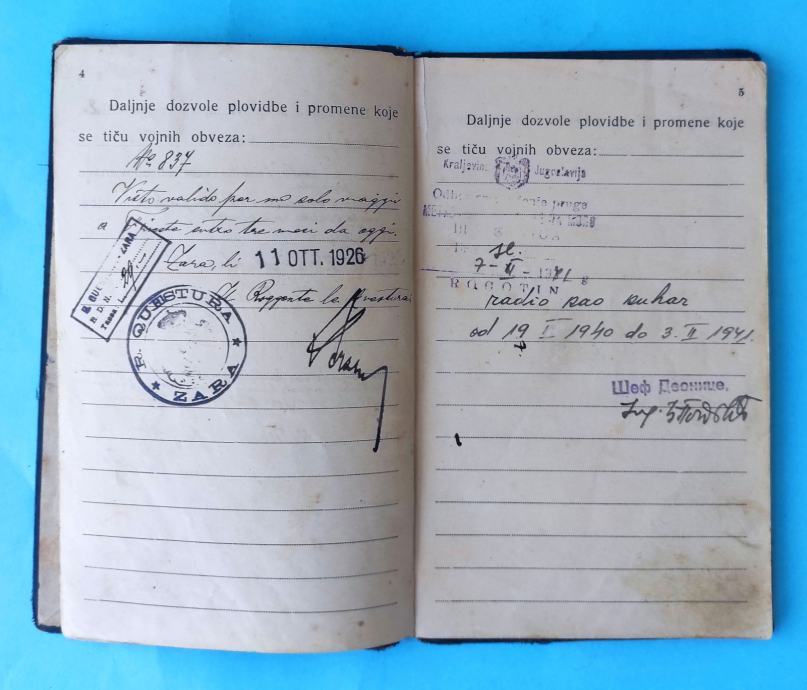 4
Daljnje dozvole plovidbe i promene koje
se tiču vojnih obveza:
No 837
Visto valido per un solo viaggio
a Trieste entro tre mesi da oggi.
Zara, li 11 OTT. 1926
Il Reggente la Questura
R. QUESTURA
ZARA
5
Daljnje dozvole plovidbe i promene koje
se tiču vojnih obveza:
Kraljevina Jugoslavija
pruge
ROGOTIN
radio kao kuhar
od 19 I 1940 do 3. II 1941.
Шеф Деонице,